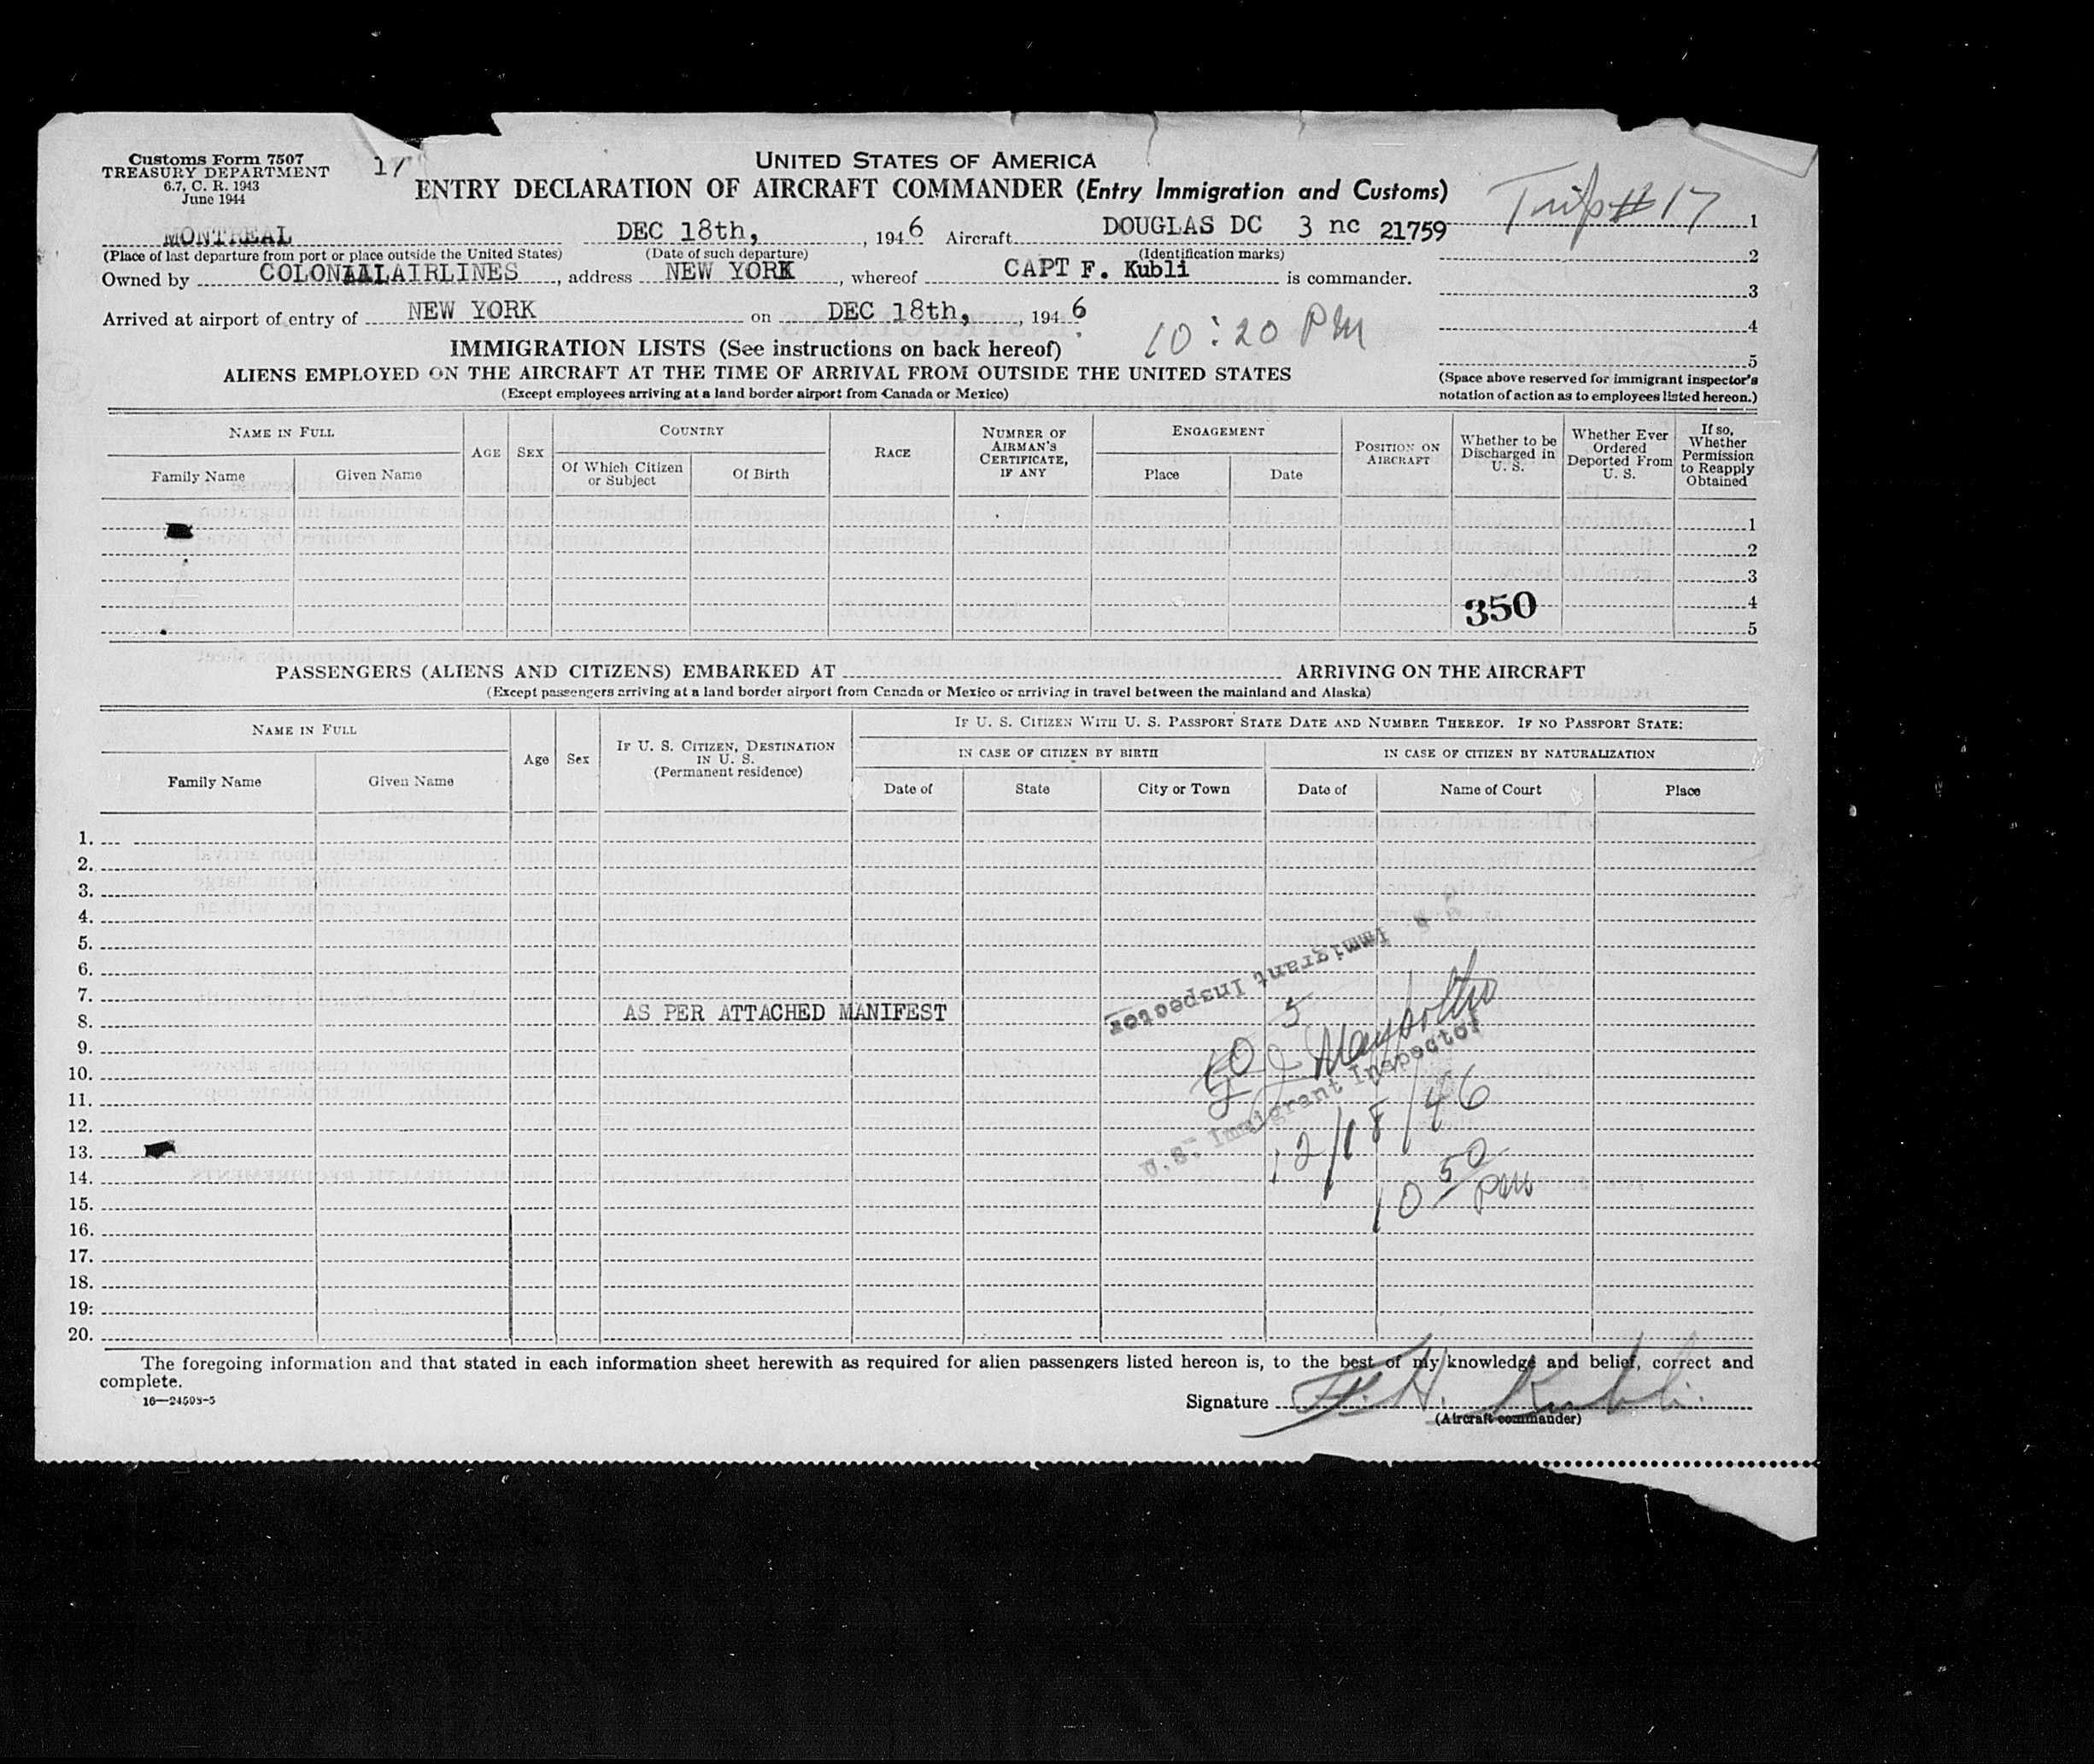 Customs Form 7507
TREASURY DEPARTMENT
6.7, C. R. 1943
June 1944
17
UNITED STATES OF AMERICA
ENTRY DECLARATION OF AIRCRAFT COMMANDER (Entry Immigration and Customs)
Trip #17
MONTREAL DEC 18th, , 1946 Aircraft DOUGLAS DC 3 nc 21759 1
(Place of last departure from port or place outside the United States) (Date of such departure) (Identification marks) 2
Owned by COLONIAL AIRLINES , address NEW YORK , whereof CAPT F. Kubli is commander.
3
Arrived at airport of entry of NEW YORK on DEC 18th, , 1946 10:20 PM 4
IMMIGRATION LISTS (See instructions on back hereof)
5
ALIENS EMPLOYED ON THE AIRCRAFT AT THE TIME OF ARRIVAL FROM OUTSIDE THE UNITED STATES
(Except employees arriving at a land border airport from Canada or Mexico)
(Space above reserved for immigrant inspector's
notation of action as to employees listed hereon.)
NAME IN FULL
Family Name Given Name
AGE SEX
COUNTRY
Of Which Citizen or Subject Of Birth
RACE
NUMBER OF AIRMAN'S CERTIFICATE, IF ANY
ENGAGEMENT
Place Date
POSITION ON AIRCRAFT
Whether to be Discharged in U. S.
Whether Ever Ordered Deported From U. S.
If so, Whether Permission to Reapply Obtained
1
2
3
350 4
5
PASSENGERS (ALIENS AND CITIZENS) EMBARKED AT ARRIVING ON THE AIRCRAFT
(Except passengers arriving at a land border airport from Canada or Mexico or arriving in travel between the mainland and Alaska)
NAME IN FULL
Family Name Given Name
Age Sex
IF U. S. CITIZEN, DESTINATION IN U. S. (Permanent residence)
IF U. S. CITIZEN WITH U. S. PASSPORT STATE DATE AND NUMBER THEREOF. IF NO PASSPORT STATE:
IN CASE OF CITIZEN BY BIRTH IN CASE OF CITIZEN BY NATURALIZATION
Date of State City or Town Date of Name of Court Place
1.
2.
3.
4.
5.
6.
7.
8. AS PER ATTACHED MANIFEST
9.
10.
11.
12.
13.
14.
15.
16.
17.
18.
19.
20.
U. S. Immigrant Inspector
U.S. Immigrant Inspector
12/18/46
10 50 PM
The foregoing information and that stated in each information sheet herewith as required for alien passengers listed hereon is, to the best of my knowledge and belief, correct and
complete.
16—24598-5
Signature F. H. Kubli
(Aircraft commander)